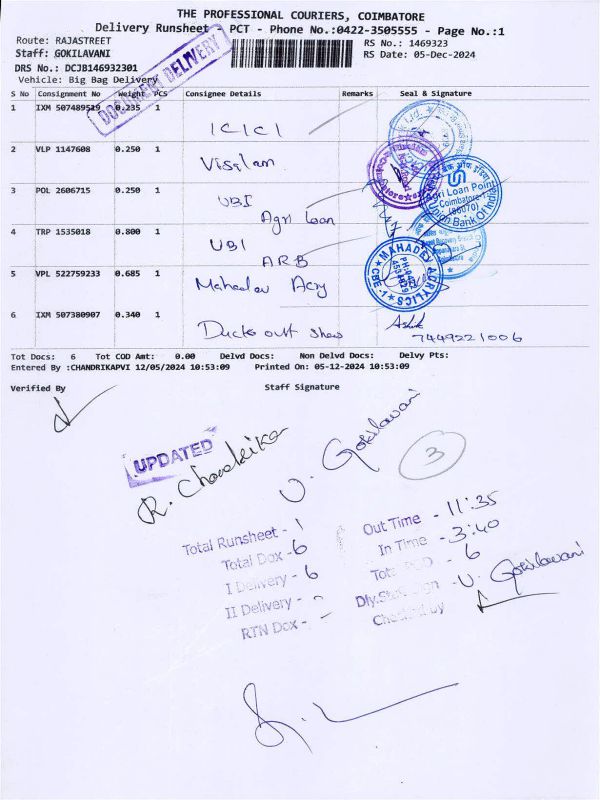 THE PROFESSIONAL COURIERS, COIMBATORE
Delivery Runsheet - PCT - Phone No.:0422-3505555 - Page No.:1
Route: RAJASTREET
RS No.: 1469323
Staff: GOKILAVANI
RS Date: 05-Dec-2024
DRS No.: DCJB146932301
Vehicle: Big Bag Delivery
DOCUMENT DELIVERY
S No Consignment No Weight PCS Consignee Details Remarks Seal & Signature
1 IXM 507489519 0.235 1
ICICI
2 VLP 1147608 0.250 1
3 POL 2606715 0.250 1
UBI
Agri Loan
4 TRP 1535018 0.800 1
UBI
ARB
5 VPL 522759233 0.685 1
Mahadev Acry
6 IXM 507380907 0.340 1
out
7449221006
Agri Loan Point
Coimbatore
Union Bank Of India
MAHADEV ACRYLICS
CBE-1
Tot Docs: 6 Tot COD Amt: 0.00 Delvd Docs: Non Delvd Docs: Delvy Pts:
Entered By :CHANDRIKAPVI 12/05/2024 10:53:09 Printed On: 05-12-2024 10:53:09
Verified By Staff Signature
UPDATED
R. Chandrika
U. Gokilavani
3
Total Runsheet - 1
Out Time - 11:35
Total Dox - 6
In Time - 3:40
I Delivery - 6
II Delivery -
U. Gokilavani
RTN Dox -
Checked by